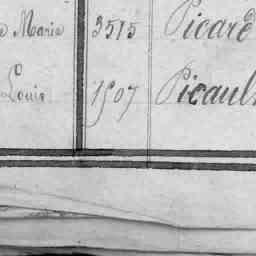 Marie 3515 Picard
Louis 1507 Picault